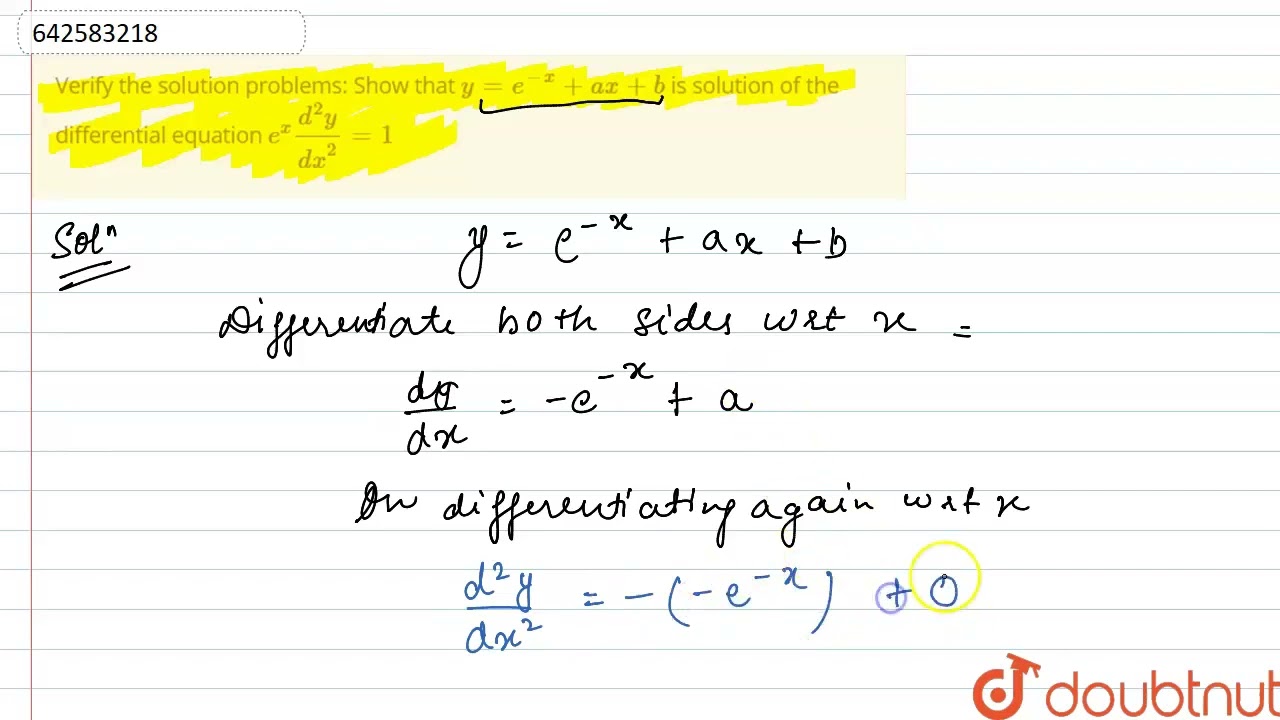 642583218
Verify the solution problems: Show that y = e^{-x} + ax + b is solution of the
differential equation e^x d²y/dx² = 1
Solⁿ
y = e^{-x} + ax + b
Differentiate both sides wrt x =
dy/dx = -e^{-x} + a
On differentiating again wrt x
d²y/dx² = -(-e^{-x}) + 0
doubtnut